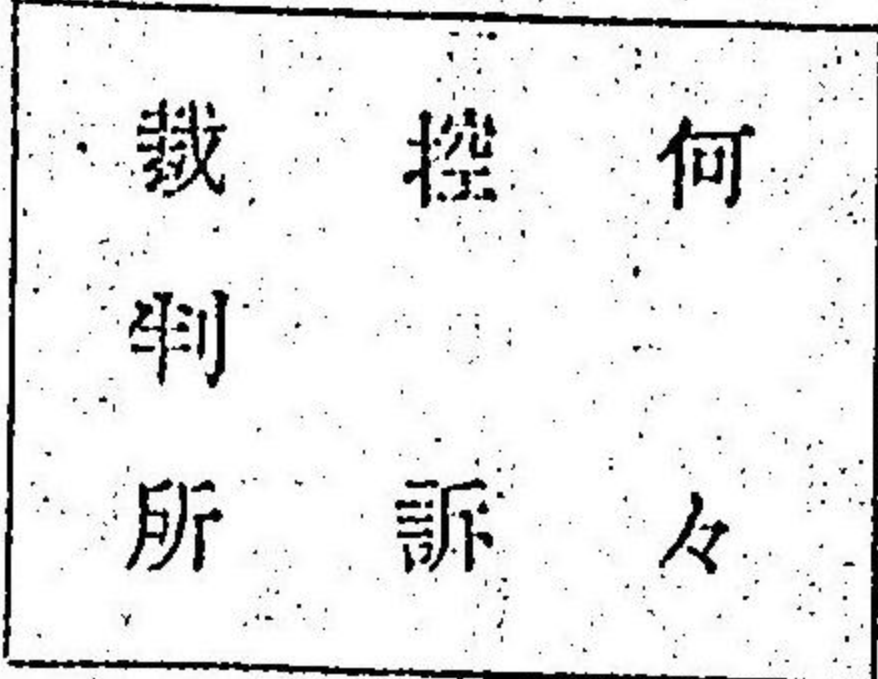 何々
控訴
裁判所